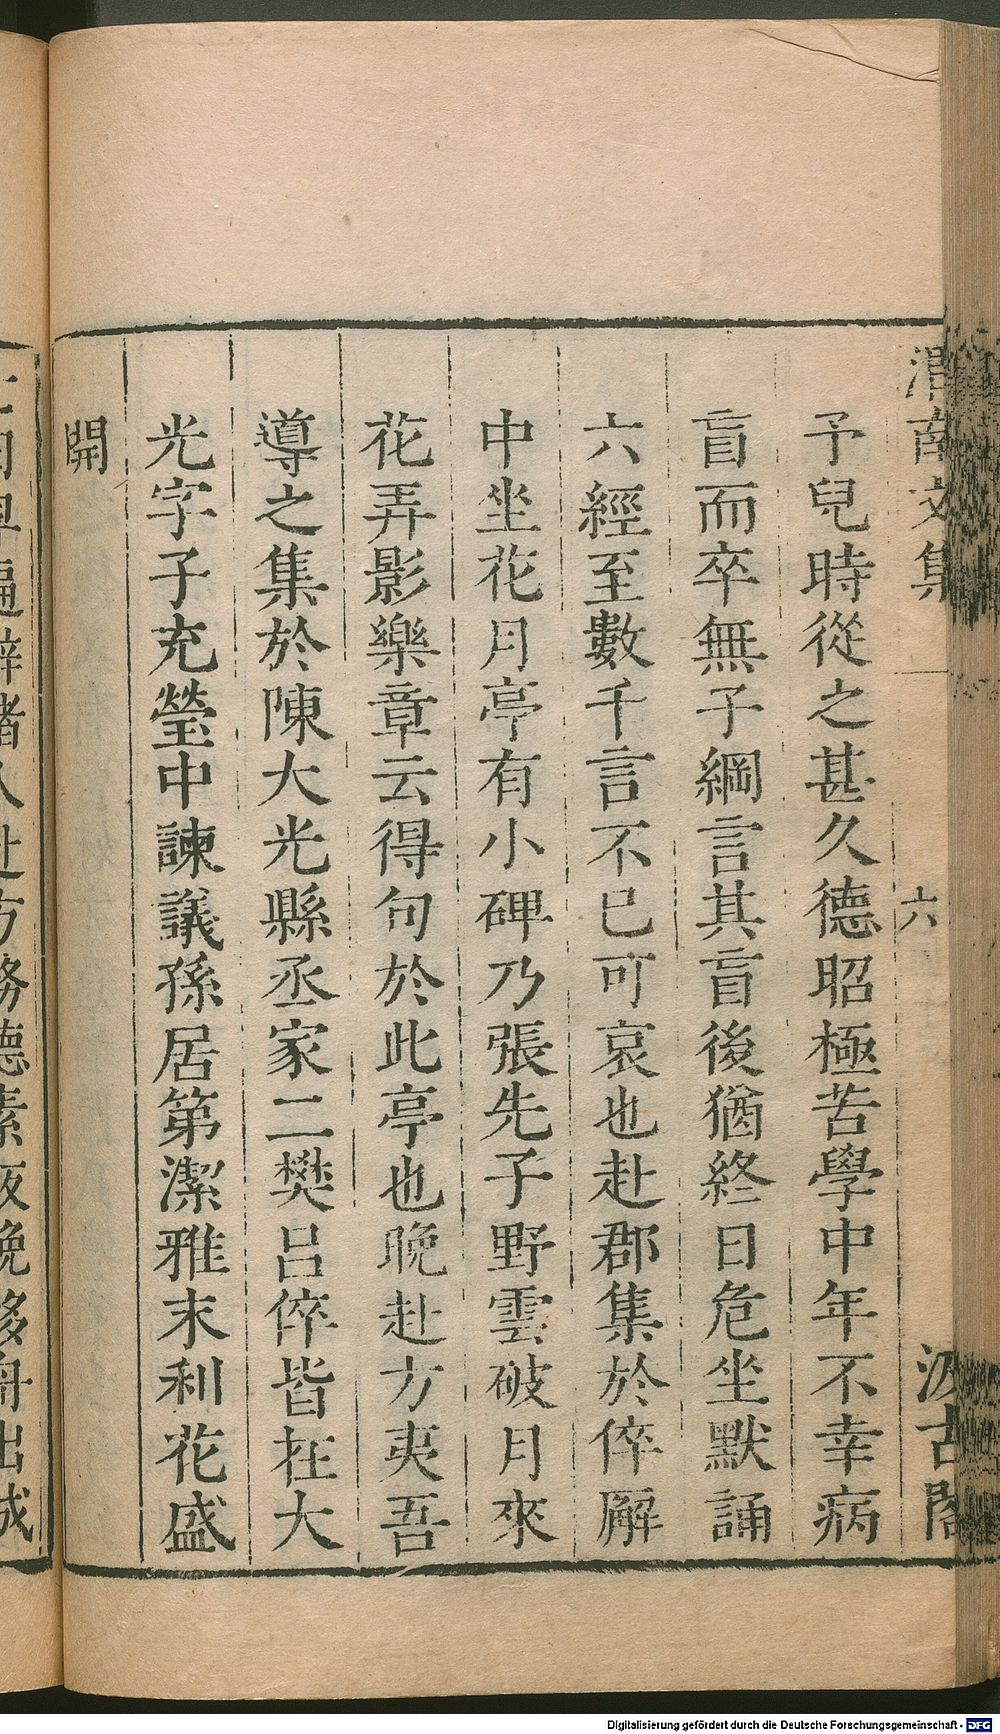 渭南文集
六
汲古閣
予兒時從之甚久德昭極苦學中年不幸病
盲而卒無子綱言其盲後猶終日危坐默誦
六經至數千言不已可哀也赴郡集於倅廨
中坐花月亭有小碑乃張先子野雲破月來
花弄影樂章云得句於此亭也晚赴方夷吾
導之集於陳大光縣丞家二樊呂倅皆在大
光字子充瑩中諫議孫居第潔雅末利花盛
開
務德素飯晚移舟出城
Digitalisierung gefördert durch die Deutsche Forschungsgemeinschaft - DFG